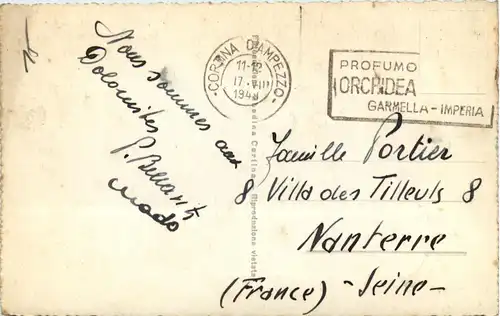 Nous sommes aux
Dolomites
Mado
CORTINA D'AMPEZZO
11-12
17.VIII
PROFUMO
ORCHIDEA
GARMELLA - IMPERIA
Famille Portier
8 Villa des Tilleuls 8
Nanterre
(France) - Seine -
Riproduzione vietata